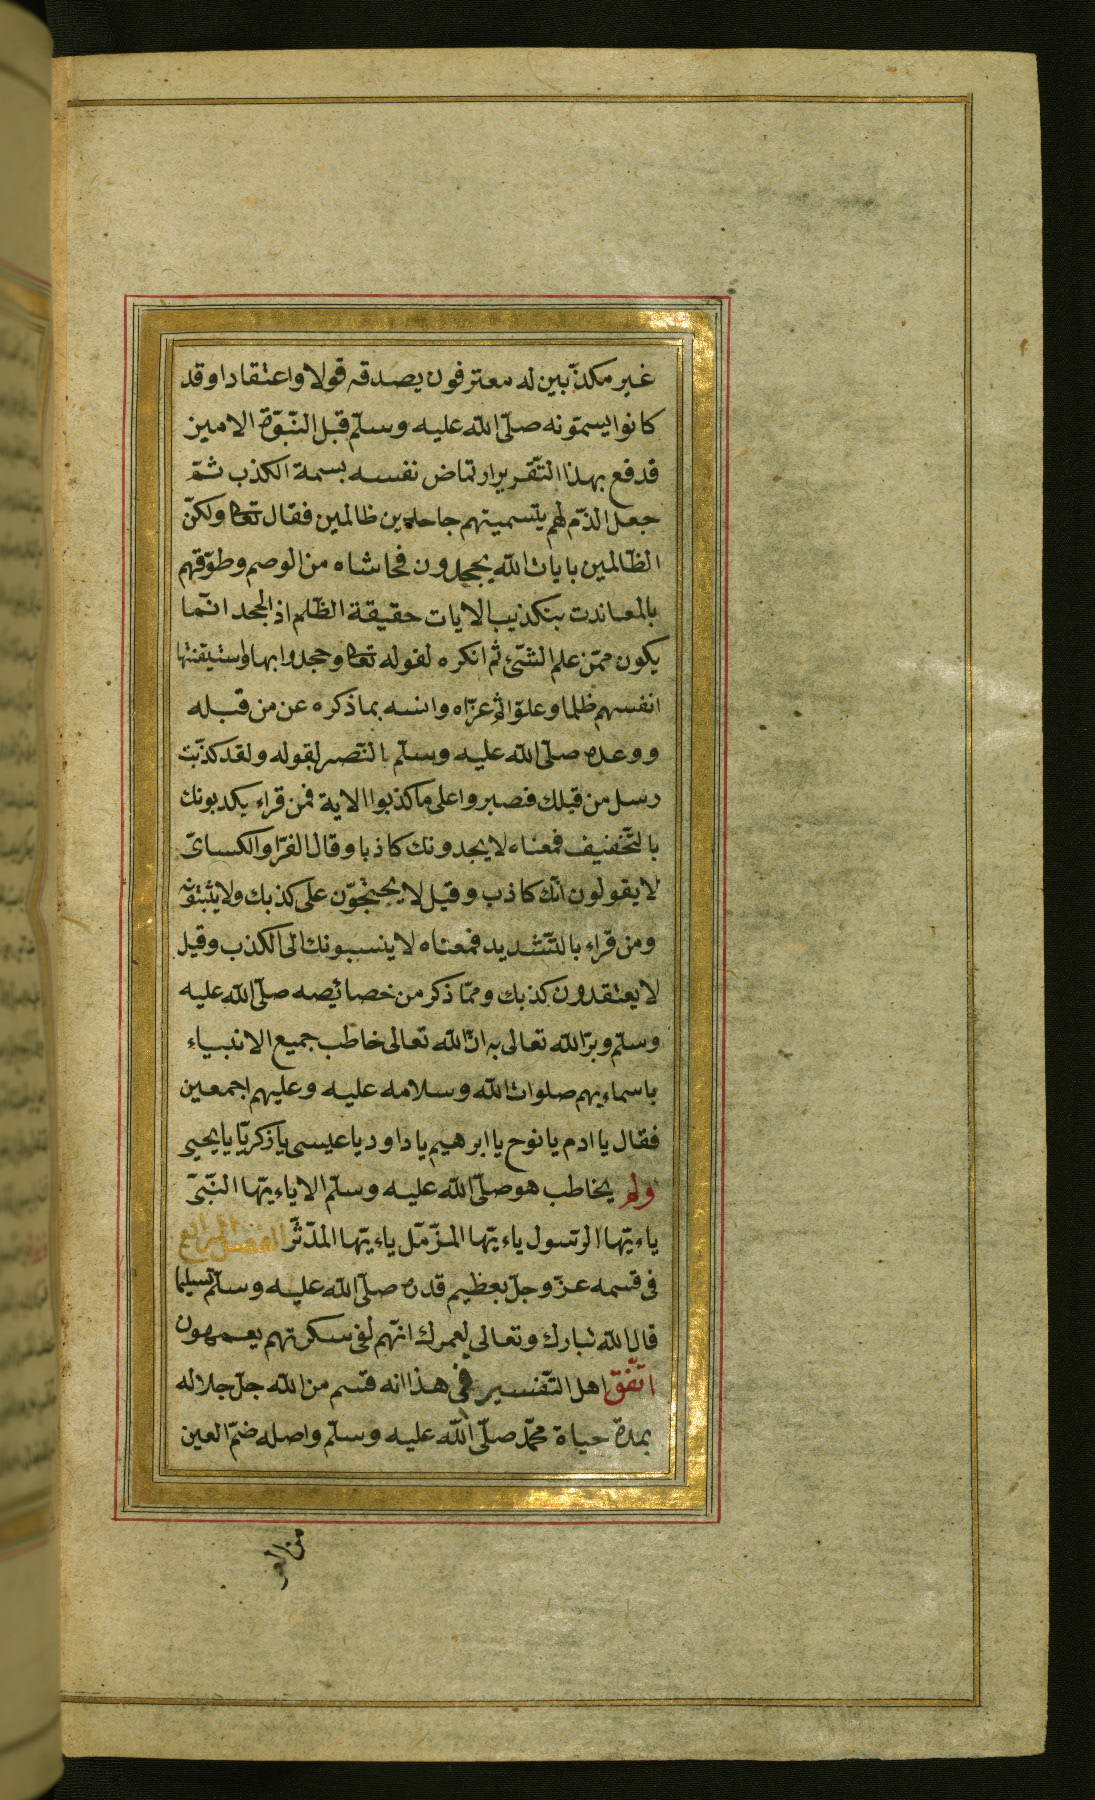 غير مكذّبين له معترفون بصدقه قولا واعتقادا وقد
كانوا يسمّونه صلّى الله عليه وسلّم قبل النّبوّة الامين
فدفع بهذا التّقرير ارتماض نفسه بسمة الكذب ثمّ
جعل الذّم لهم بتسميتهم جاحدين ظالمين فقال تعالى ولكنّ
الظّالمين بايات الله يجحدون فحاشاه من الوصم وطوّقهم
بالمعاندت بتكذيب الايات حقيقة الظّلم اذ الجحد انّما
يكون ممّن علم الشّيئ ثم انكره لقوله تعالى وجحدوا بها واستيقنتها
انفسهم ظلما وعلوّا ثمّ عزّاه وانسه بما ذكره عن من قبله
ووعده صلّى الله عليه وسلّم بالنّصر لقوله ولقد كذّبت
رسل من قبلك فصبروا على ما كذبوا الاية فمن قراء يكذبونك
بالتّخفيف فمعناه لا يجدونك كاذبا وقال الفرّا والكسائ
لا يقولون انّك كاذب وقيل لا يحتجّون على كذبك ولا يثبتونه
ومن قراء بالتّشديد فمعناه لا ينسبونك الى الكذب وقيل
لا يعتقدون كذبك وممّا ذكر من خصائصه صلّى الله عليه
وسلّم وبرّ الله تعالى به انّ الله تعالى خاطب جميع الانبياء
باسماءهم صلوات الله وسلامه عليه وعليهم اجمعين
فقال يا ادم يا نوح يا ابرهيم يا داود يا عيسى يا زكريّا يا يحيى
ولم يخاطب هو صلّى الله عليه وسلّم الا ياءيّها النّبىّ
ياءيّها الرّسول ياءيّها المزّمّل ياءيّها المدّثّر الفصل الرابع
فى قسمه عزّ وجلّ بعظيم قدره صلّى الله عليه وسلّم تسليما
قال الله تبارك وتعالى لعمرك انّهم لفى سكرتهم يعمهون
اتّفق اهل التّفسير فى هذا انه قسم من الله جلّ جلاله
بمدة حياة محمّد صلّى الله عليه وسلّم واصله ضمّ العين
من